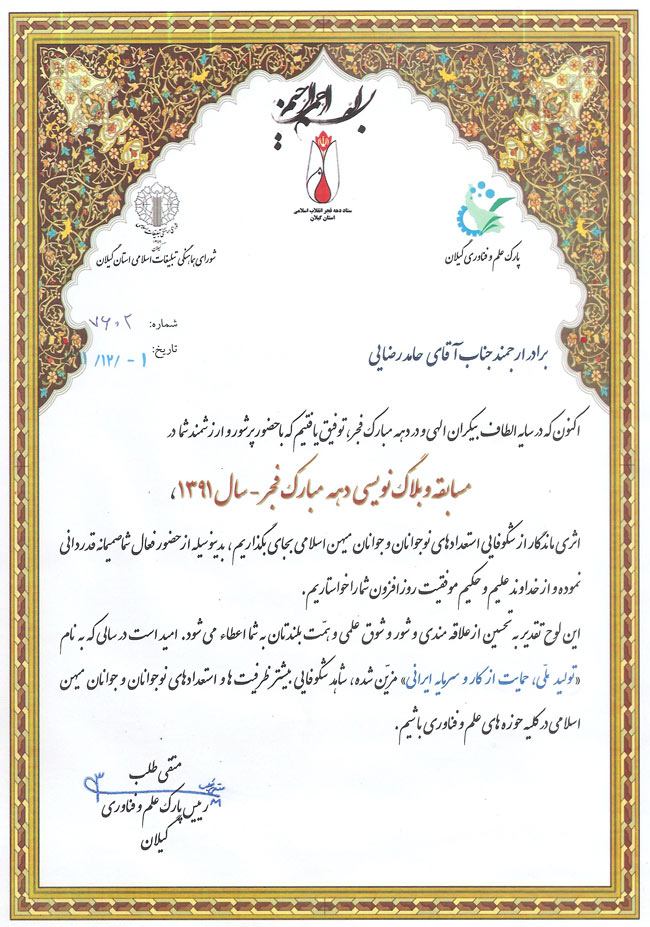 بسم الله الرحمن الرحیم
ستاد دهه فجر انقلاب اسلامی
استان گیلان
پارک علم و فناوری گیلان
شورای هماهنگی تبلیغات اسلامی استان گیلان
شماره: ۷۶۰۲
تاریخ: ۱ /۱۲/ -۱
برادر ارجمند جناب آقای حامد رضایی
اکنون که در سایه الطاف بیکران الهی و در دهه مبارک فجر، توفیق یافتیم که با حضور پرشور و ارزشمند شما در
مسابقه وبلاگ نویسی دهه مبارک فجر - سال ۱۳۹۱،
اثری ماندگار از شکوفایی استعدادهای نوجوانان و جوانان میهن اسلامی بجای بگذاریم، بدینوسیله از حضور فعال شما صمیمانه قدردانی
نموده و از خداوند علیم و حکیم موفقیت روز افزون شما را خواستاریم.
این لوح تقدیر به تحسین از علاقه مندی و شور و شوق علمی و همّت بلندتان به شما اعطاء می شود. امید است در سالی که به نام
«تولید ملّی، حمایت از کار و سرمایه ایرانی» مزیّن شده، شاهد شکوفایی بیشتر ظرفیت ها و استعدادهای نوجوانان و جوانان میهن
اسلامی در کلیه حوزه های علم و فناوری باشیم.
متقی طلب
رییس پارک علم و فناوری
گیلان